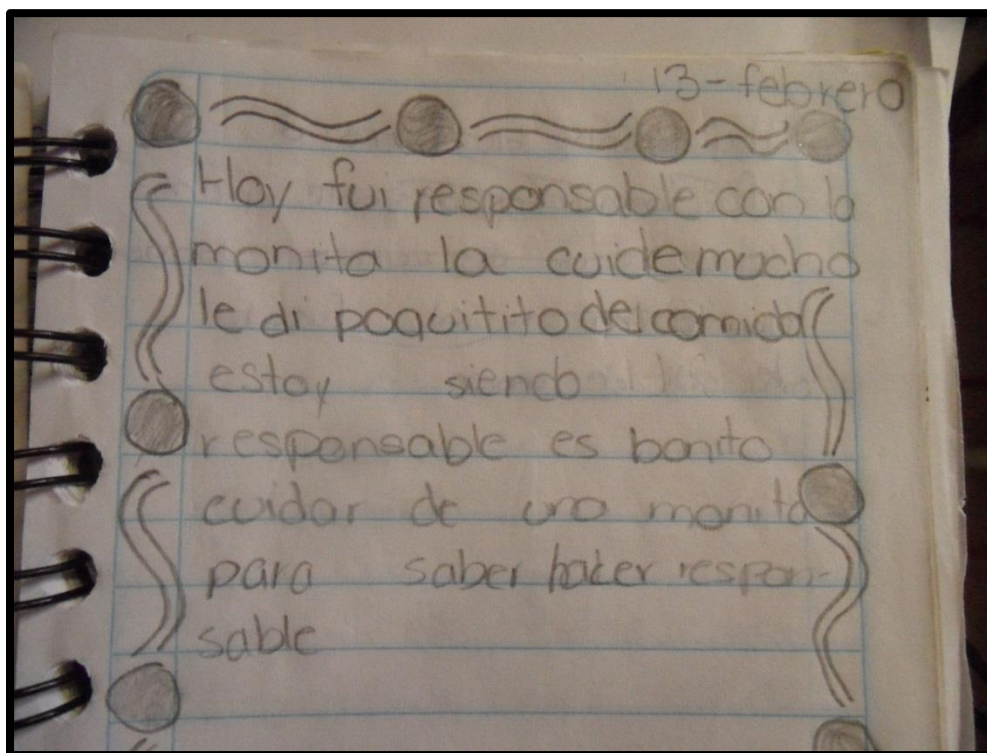 13-febrero
Hoy fui responsable con la
monita la cuide mucho
le di poquitito de comida
estoy siendo
responsable es bonito
cuidar de una monita
para saber hacer respon-
sable